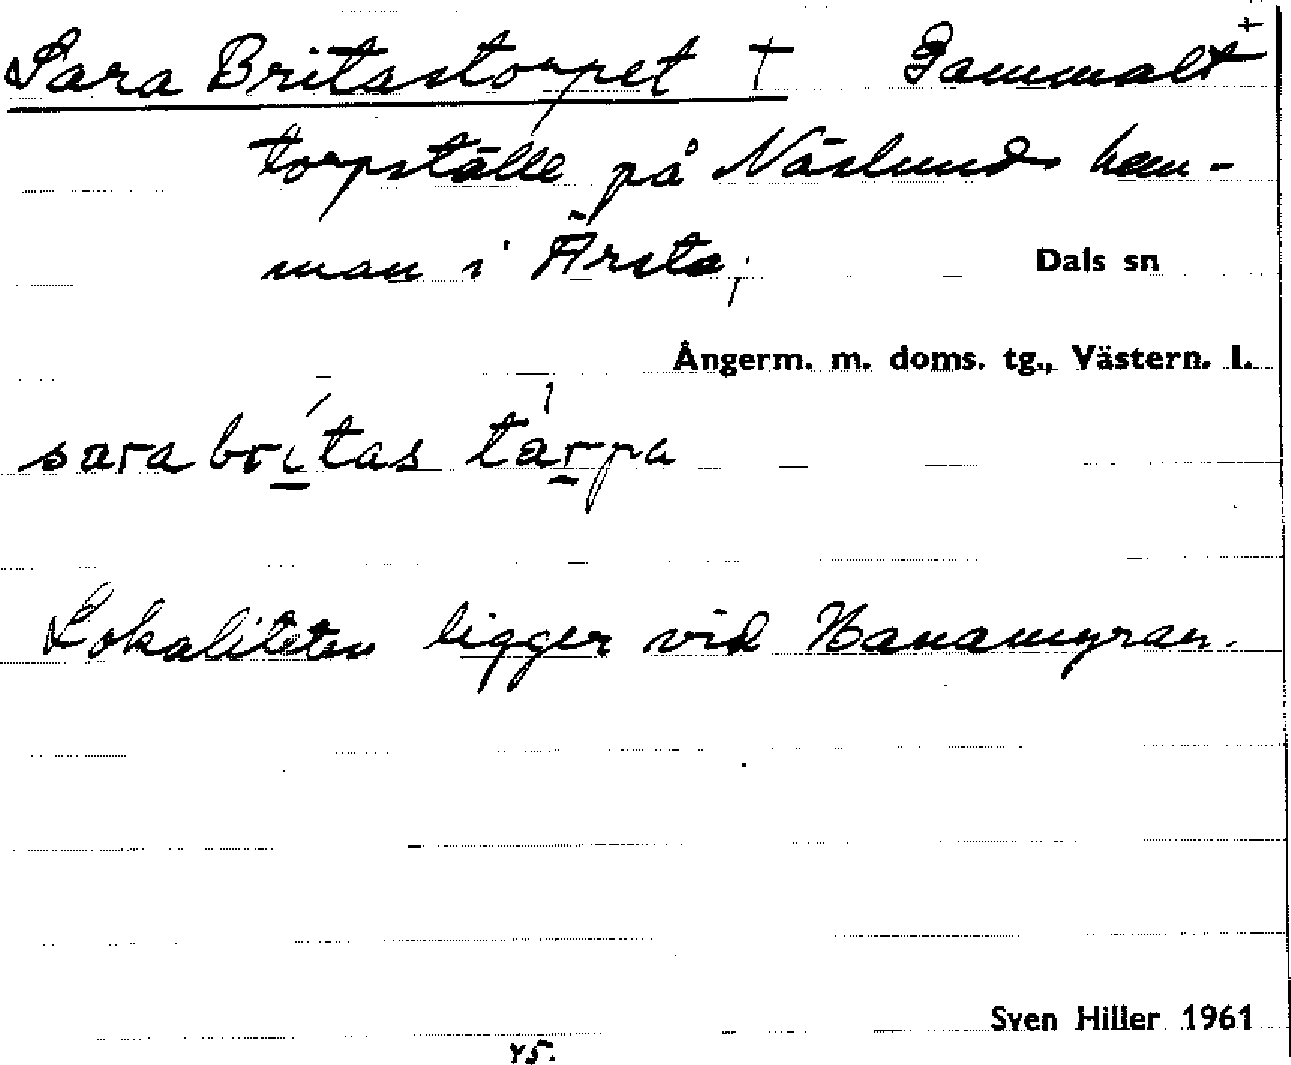 Sara Britastorpet † Gammalt +
torpställe på Näslunds hem-
man i Ärsta, Dals sn
Ångerm. m. doms. tg., Västern. l.
sara brítas tárpa
Lokaliteten ligger vid Hanamyran.
Sven Hiller 1961
45.